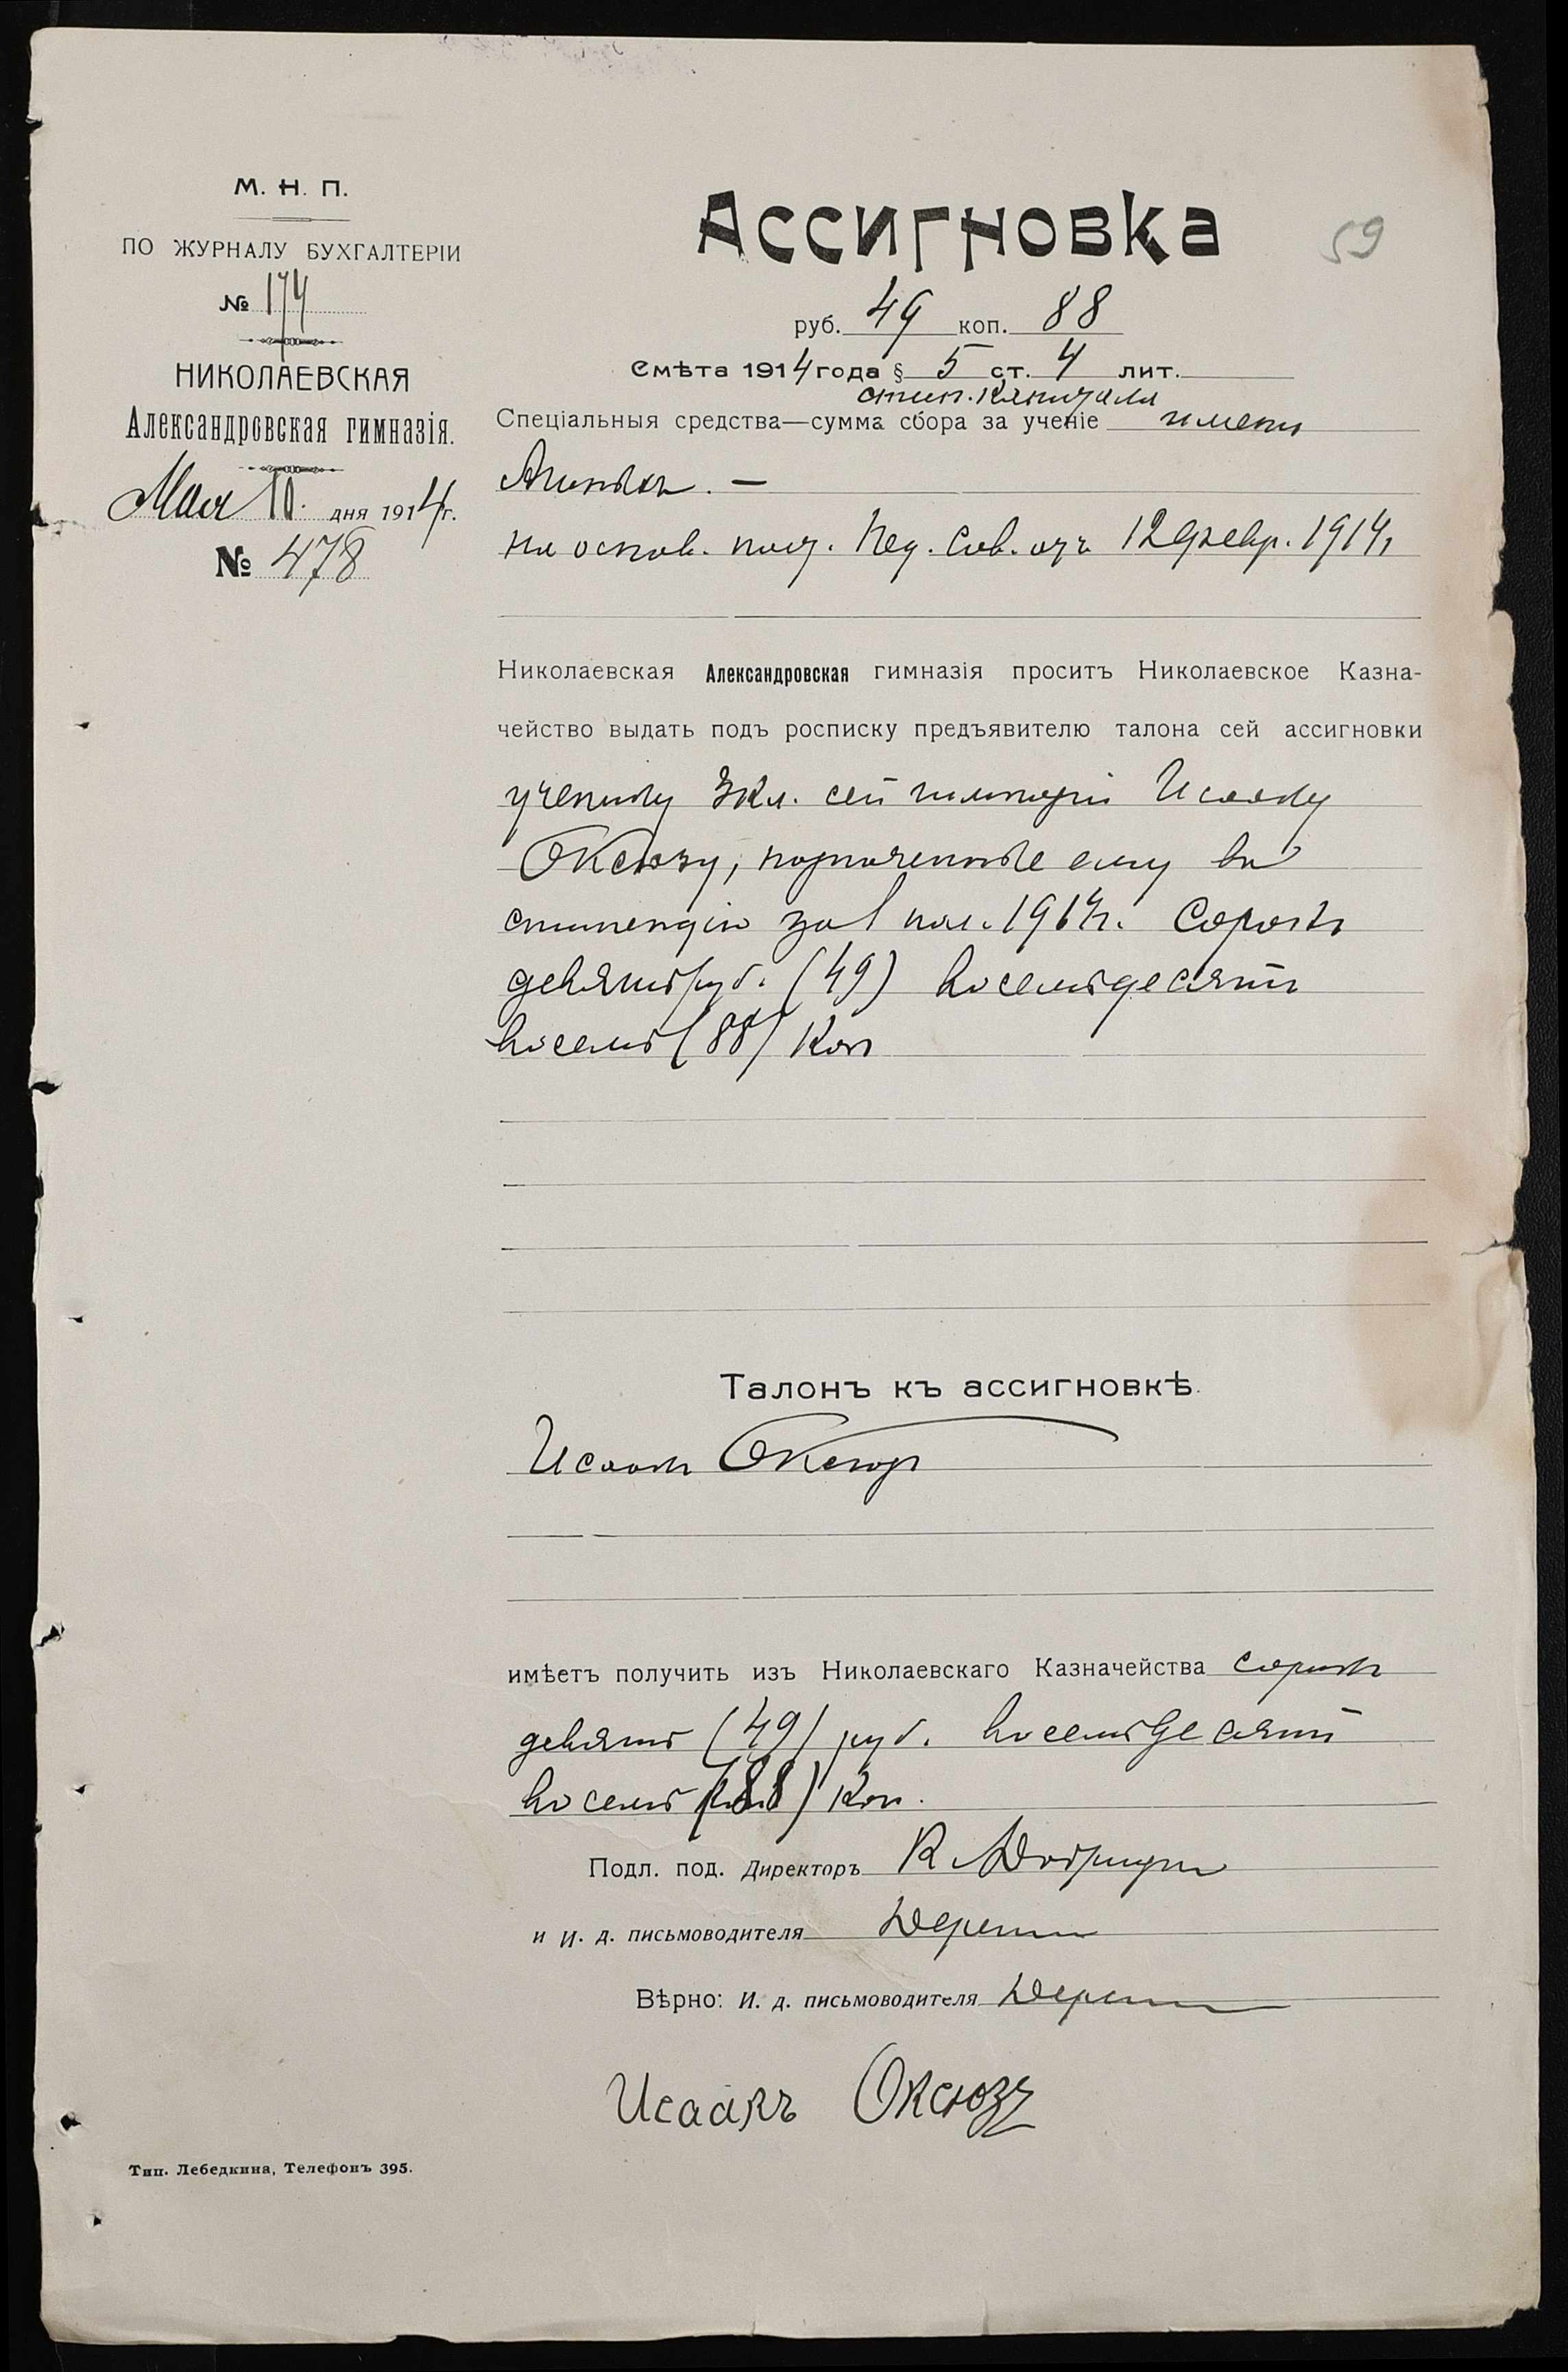 М. Н. П.
ПО ЖУРНАЛУ БУХГАЛТЕРІИ
№ 174
НИКОЛАЕВСКАЯ
Александровская гимназія.
Мая 10 дня 1914 г.
№ 478
Ассигновка
59
руб. 49 коп. 88
Смѣта 1914 года § 5 ст. 4 лит.
стип. капитала
Спеціальныя средства—сумма сбора за ученіе имени
на основ. пост. Пед. Сов. отъ 12 февр. 1914 г.
Николаевская Александровская гимназія проситъ Николаевское Казна-
чейство выдать подъ росписку предъявителю талона сей ассигновки
ученику 3 кл. сей гимназіи Исааку
Оксюзу, назначенные ему въ
стипендію за 1 пол. 1914 г. Сорокъ
девять руб. (49) восемьдесятъ
восемь (88) коп
Талонъ къ ассигновкѣ.
Исаакъ Оксюзъ
имѣетъ получить изъ Николаевскаго Казначейства сорокъ
девять (49) руб. восемьдесятъ
восемь (88) коп.
Подл. под. Директоръ К.
и И. д. письмоводителя
Вѣрно: И. д. письмоводителя
Исаакъ Оксюзъ
Тип. Лебедкина, Телефонъ 395.